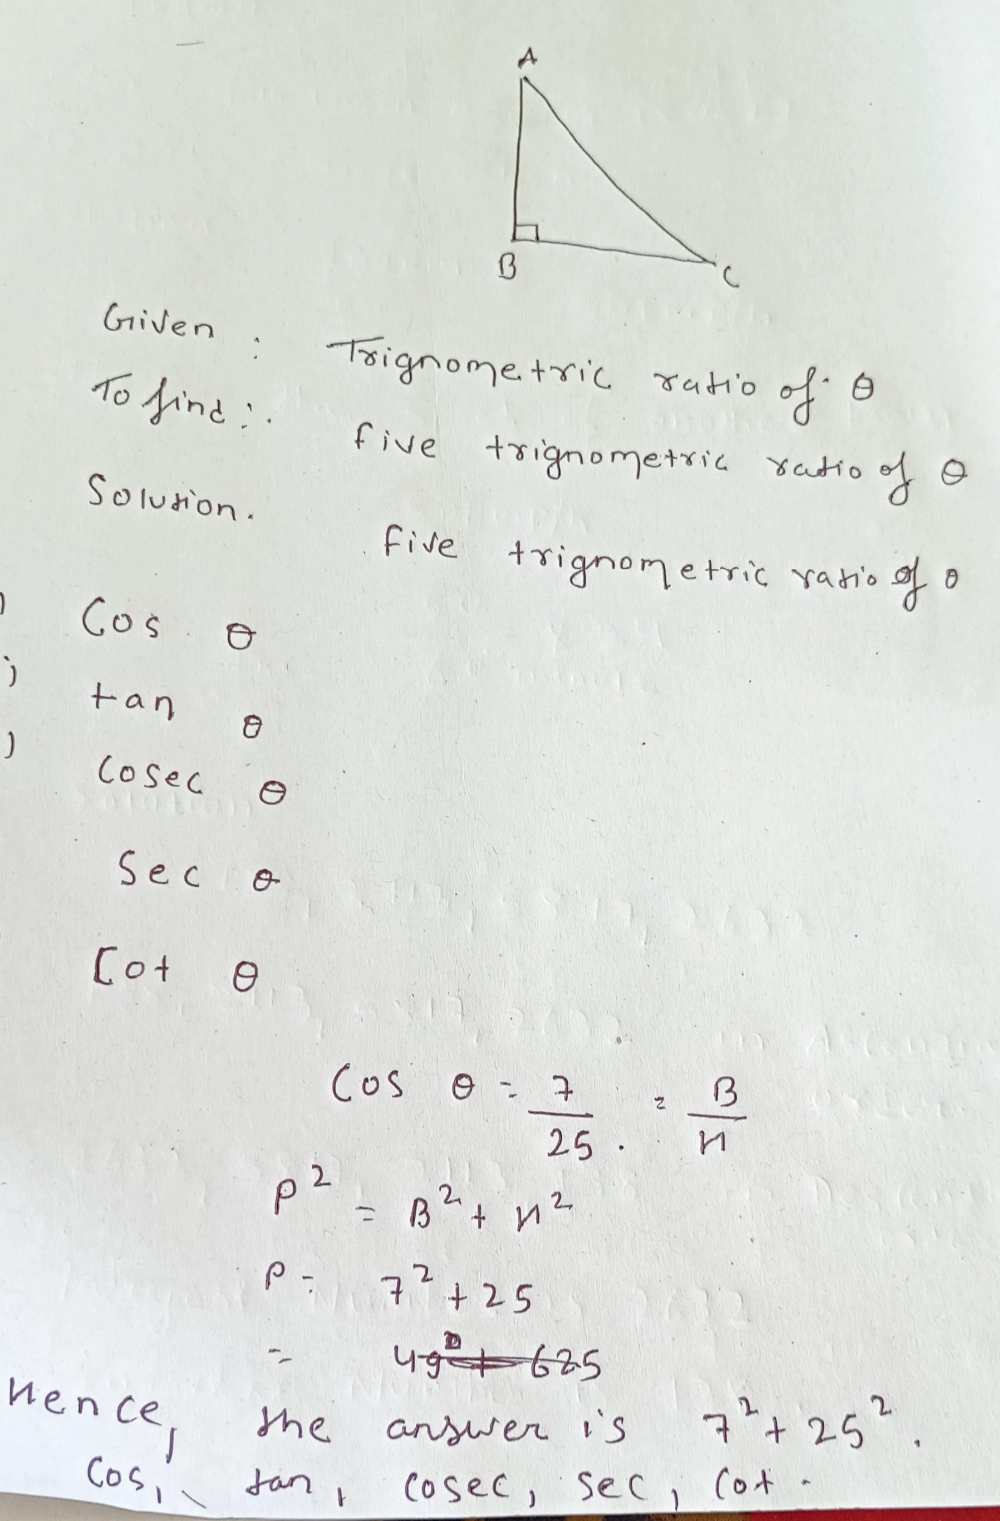 A
B
C
Given : Trignometric ratio of θ
To find : . five trignometric ratio of θ
Solution. five trignometric ratio of θ
Cos θ
tan θ
Cosec θ
Sec θ
Cot θ
Cos θ = 7/25 . = B/H
P² = B² + H²
P = 7² + 25
=
Hence, the answer is 7² + 25².
Cos, tan, cosec, sec, cot.